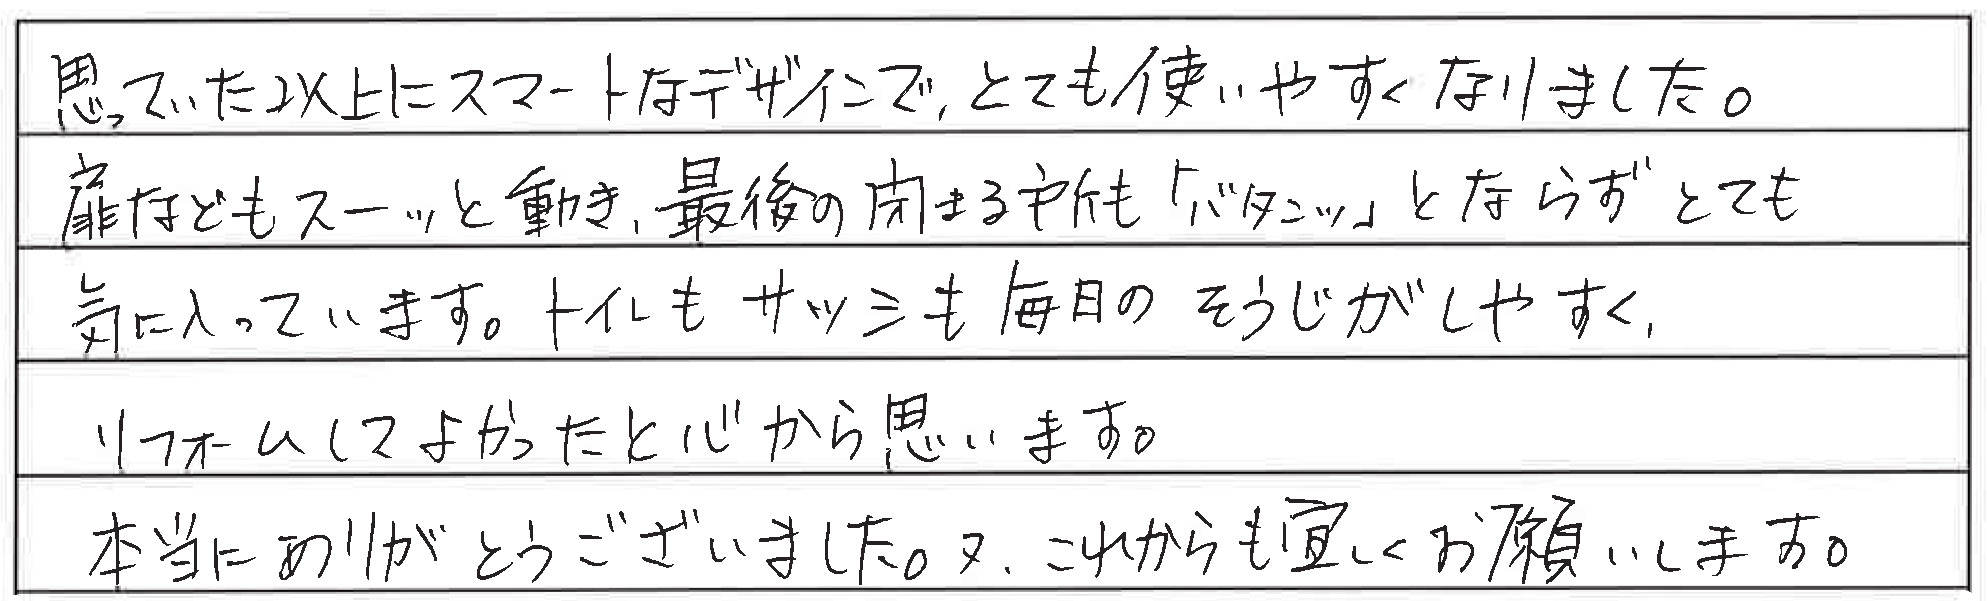 思っていた以上にスマートなデザインで、とても使いやすくなりました。
扉などもスーッと動き、最後の閉まる所も「バタンッ」とならずとても
気に入っています。トイレもサッシも毎日のそうじがしやすく、
リフォームしてよかったと心から思います。
本当にありがとうございました。又、これからも宜しくお願いします。